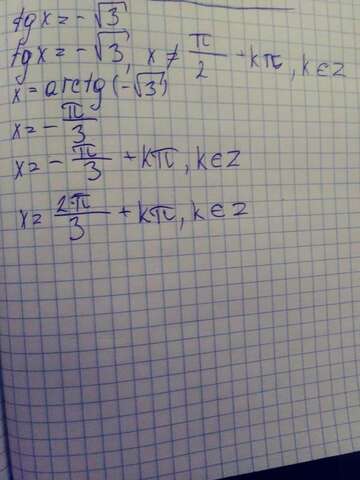 tgx = -√3
tgx = -√3, x ≠ π/2 + kπ, k∈Z
x = arctg(-√3)
x = -π/3
x = -π/3 + kπ, k∈Z
x = 2π/3 + kπ, k∈Z